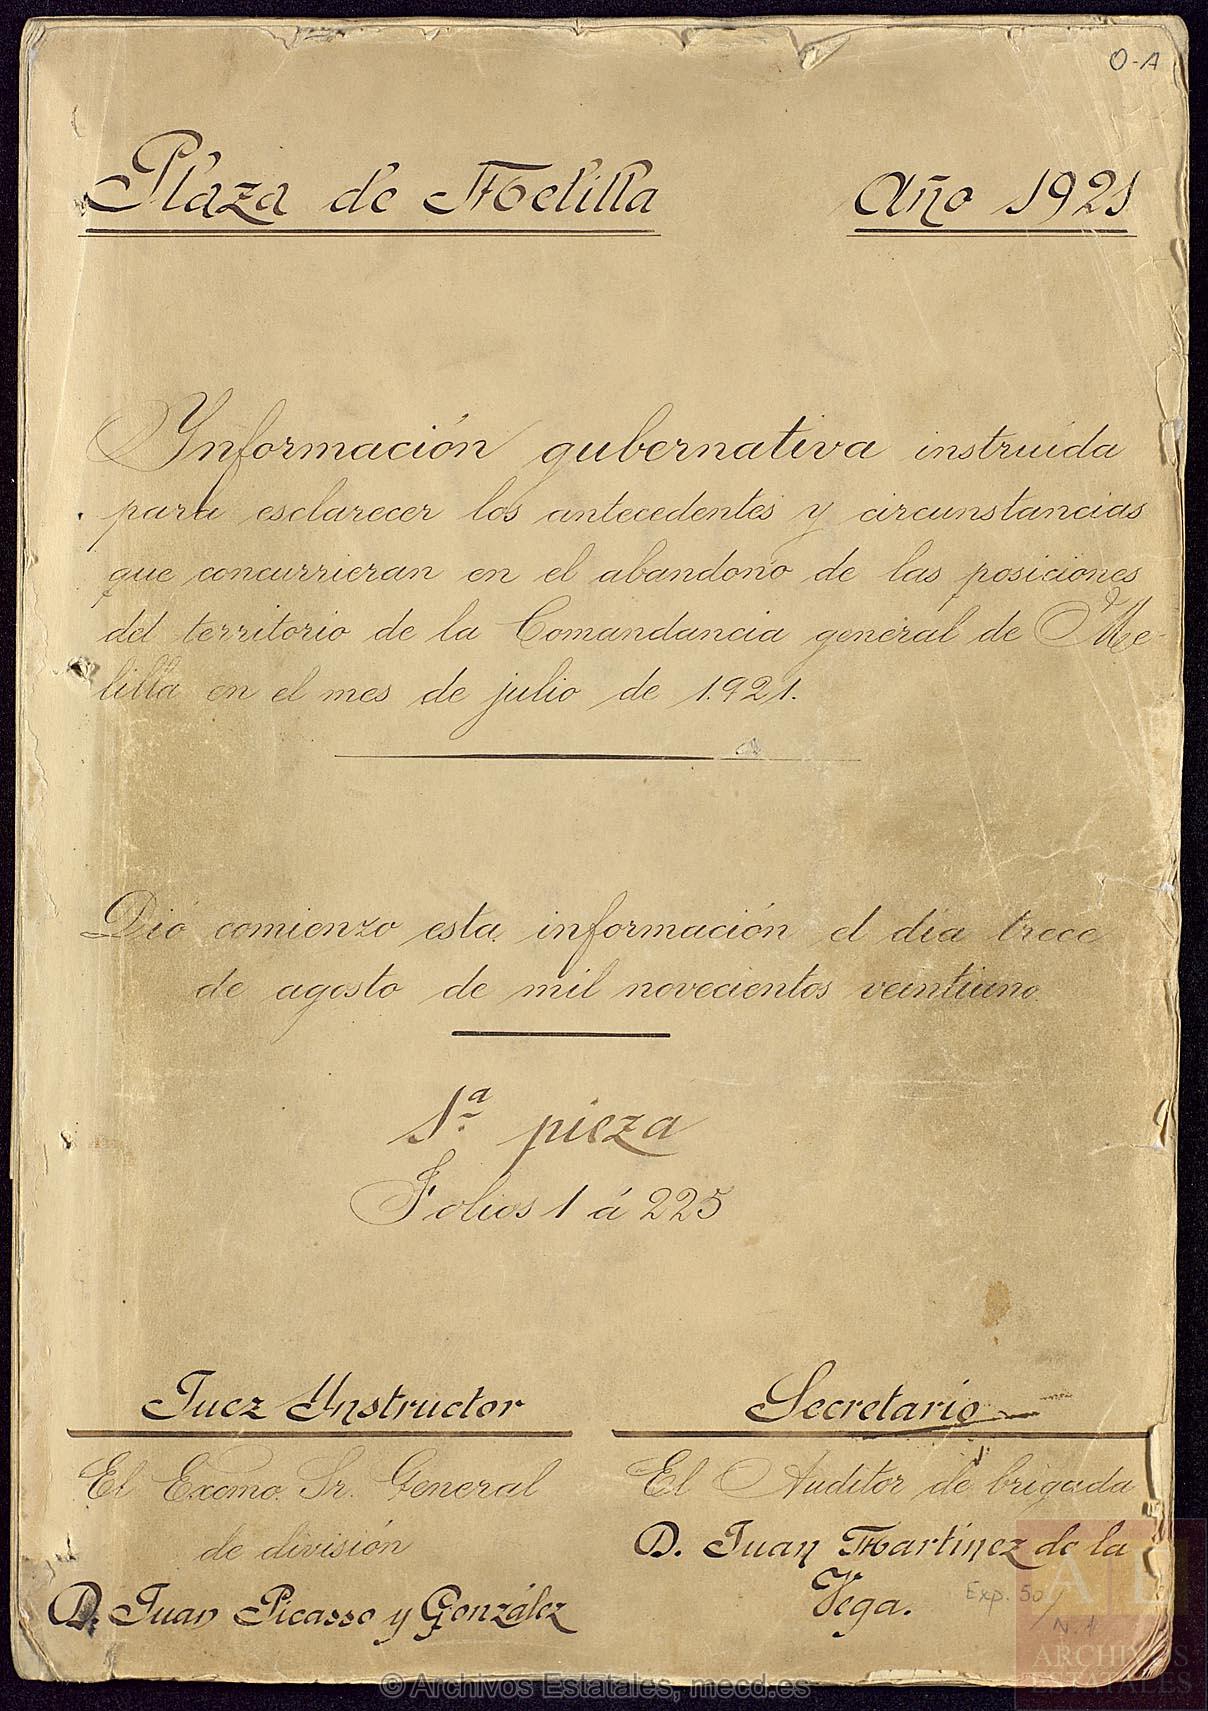 O-A
Plaza de Melilla Año 1921
Ynformación gubernativa instruída
para esclarecer los antecedentes y circunstancias
que concurrieran en el abandono de las posiciones
del territorio de la Comandancia general de Me-
lilla en el mes de julio de 1.921.
Dió comienzo esta información el día trece
de agosto de mil novecientos veintiuno.
1ª pieza
Folios 1 á 225
Juez Ynstructor
El Excmo. Sr. General
de división
D. Juan Picasso y González
Secretario
El Auditor de brigada
D. Juan Martínez de la
Vega.
Exp. 50/
N. 1
AE
ARCHIVOS
ESTATALES
© Archivos Estatales, mecd.es